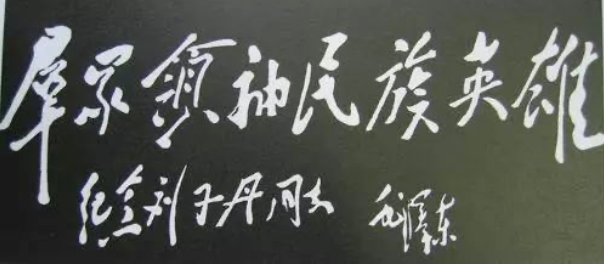 羣众領袖民族英雄
纪念刘子丹同志 毛澤东